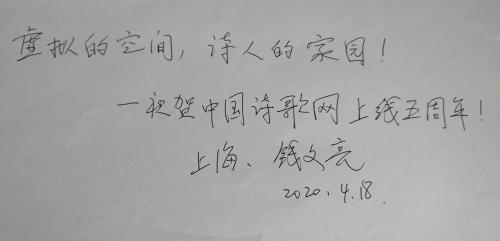 虚拟的空间，诗人的家园！
—祝贺中国诗歌网上线五周年！
上海、钱文亮
2020.4.18.